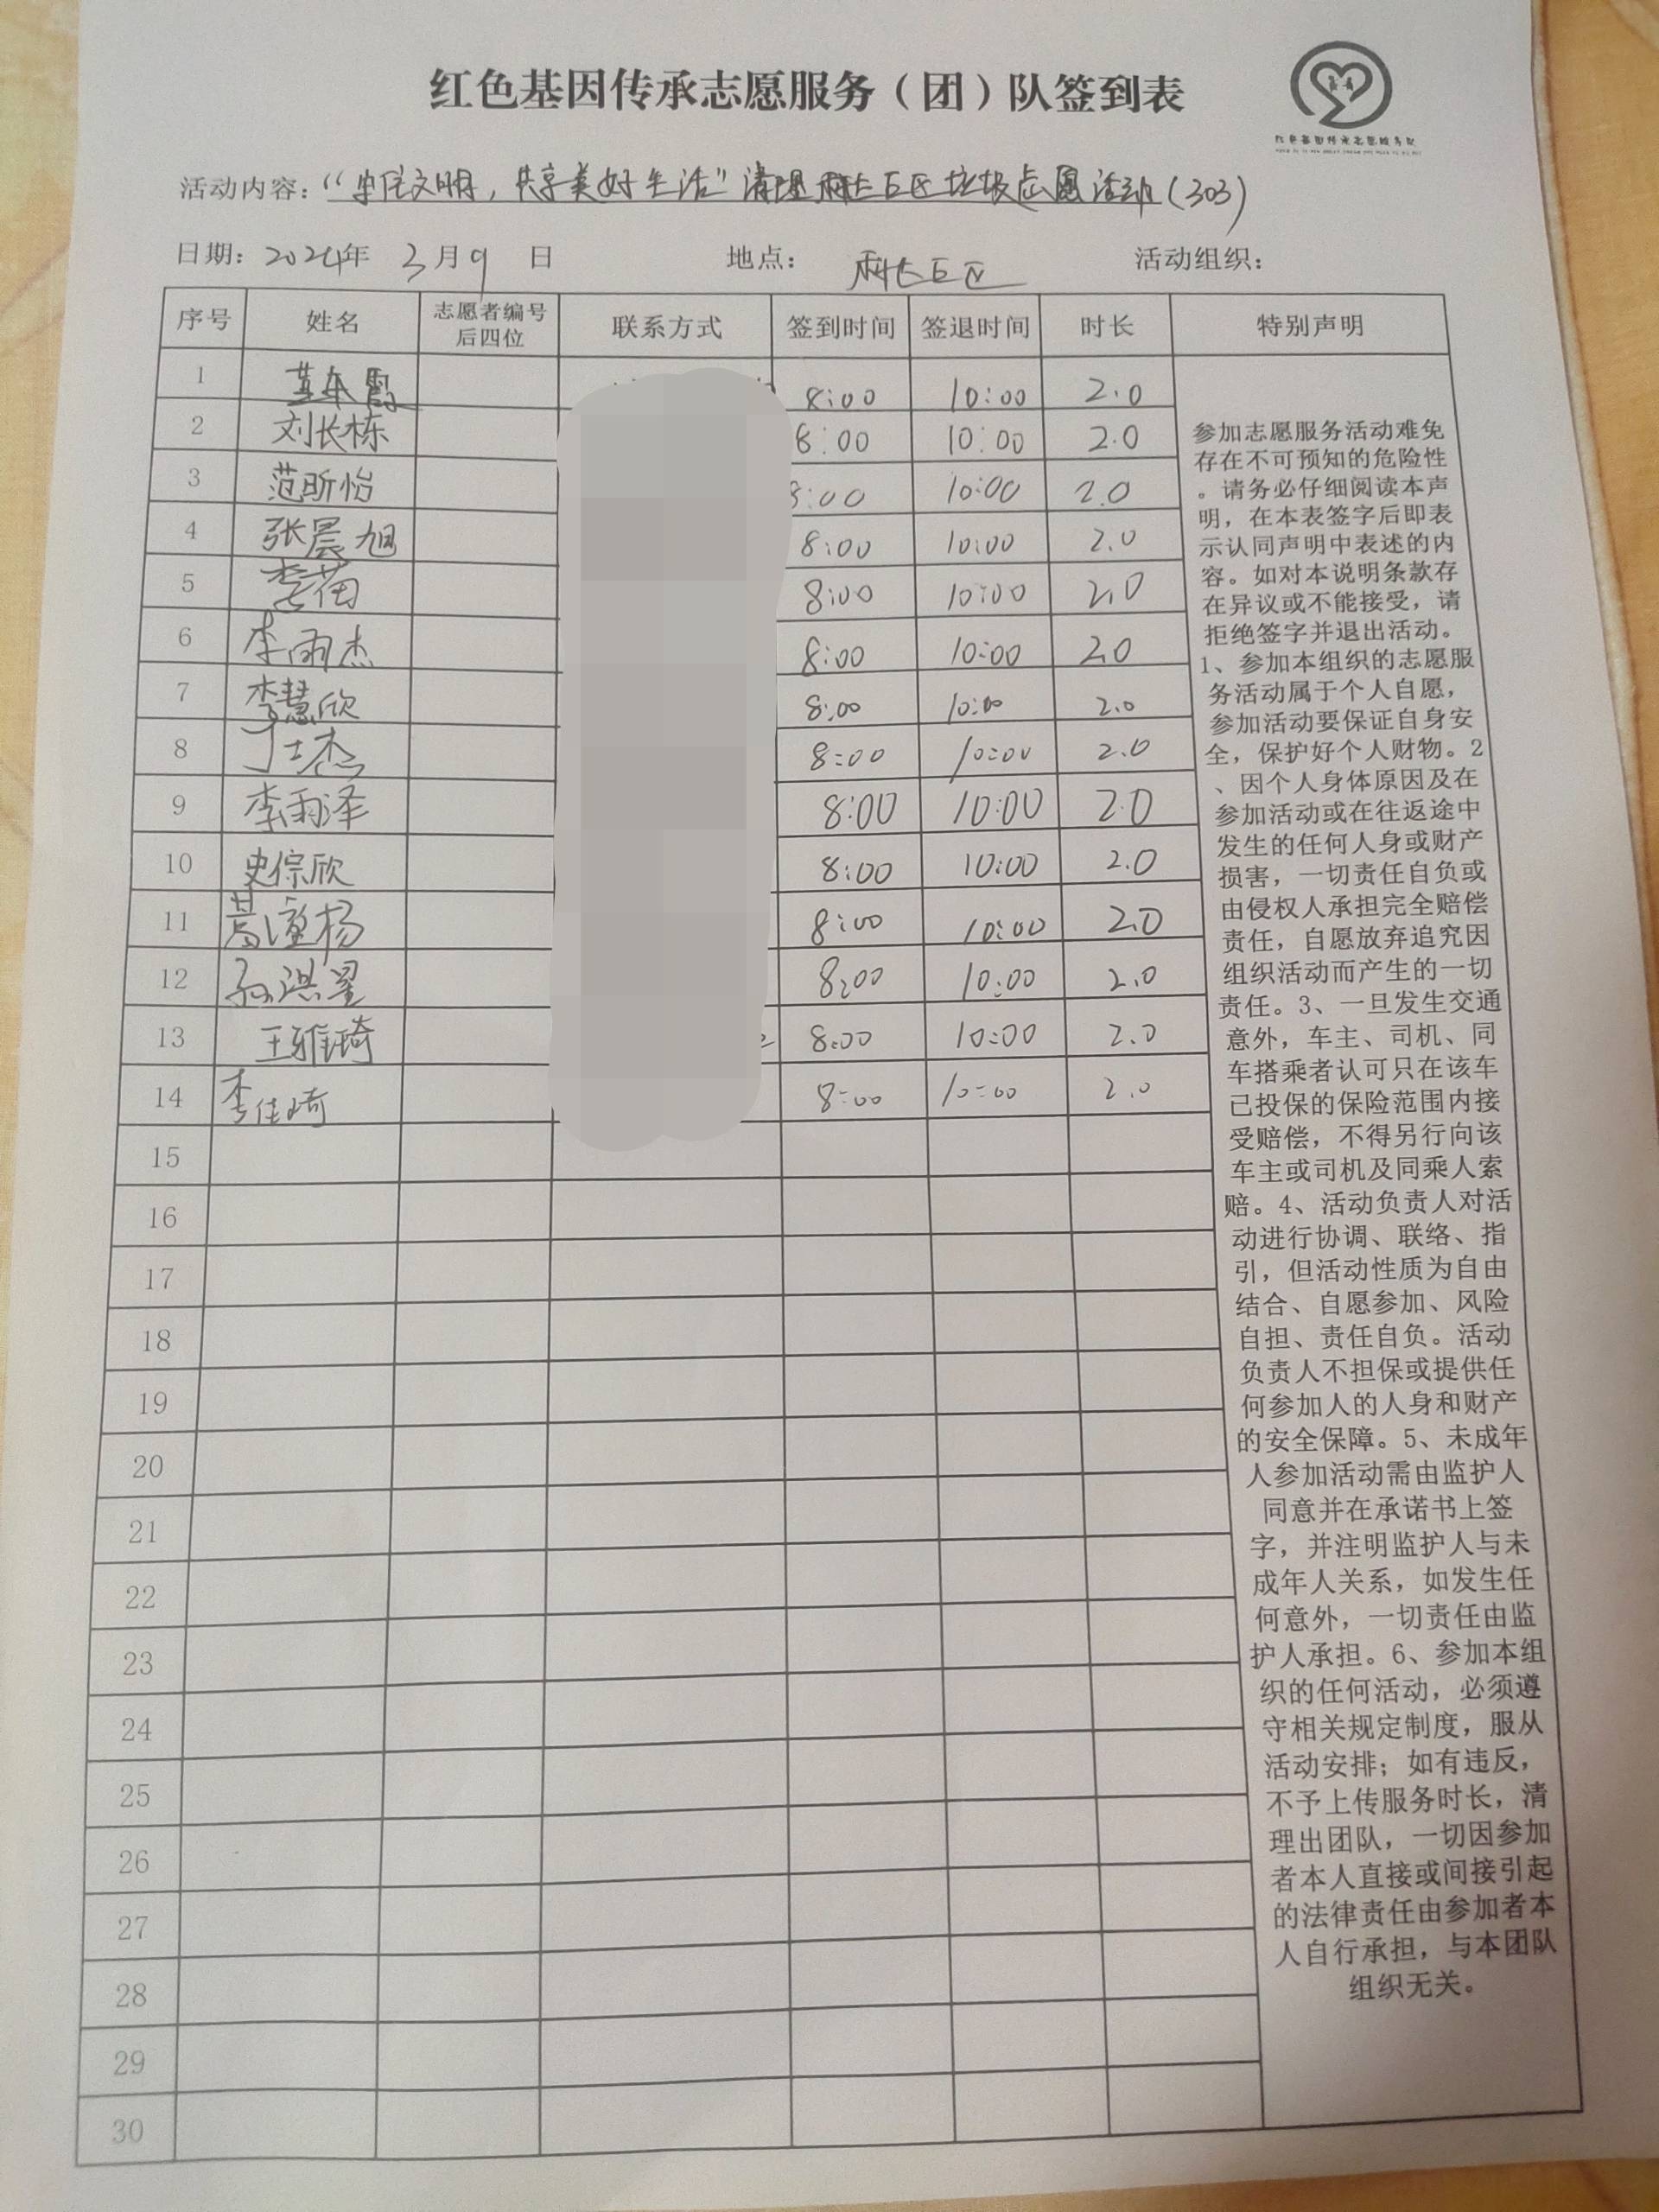 红色基因传承志愿服务（团）队签到表
活动内容：“ 文明，共享美好生活”清理 区垃圾志愿活动（303）
日期：2024年 3月9 日 地点： 活动组织：
序号 姓名 志愿者编号后四位 联系方式 签到时间 签退时间 时长 特别声明
1 8:00 10:00 2.0
2 刘长栋 8:00 10:00 2.0
3 范昕怡 8:00 10:00 2.0
4 张晨旭 8:00 10:00 2.0
5 李 8:00 10:00 2.0
6 李雨杰 8:00 10:00 2.0
7 李慧欣 8:00 10:00 2.0
8 丁士杰 8:00 10:00 2.0
9 李雨泽 8:00 10:00 2.0
10 史倧欣 8:00 10:00 2.0
11 葛潼杨 8:00 10:00 2.0
12 孙淇星 8:00 10:00 2.0
13 王雅琦 8:00 10:00 2.0
14 李佳琦 8:00 10:00 2.0
15
16
17
18
19
20
21
22
23
24
25
26
27
28
29
30
参加志愿服务活动难免
存在不可预知的危险性
。请务必仔细阅读本声
明，在本表签字后即表
示认同声明中表述的内
容。如对本说明条款存
在异议或不能接受，请
拒绝签字并退出活动。
1、参加本组织的志愿服
务活动属于个人自愿，
参加活动要保证自身安
全，保护好个人财物。2
、因个人身体原因及在
参加活动或在往返途中
发生的任何人身或财产
损害，一切责任自负或
由侵权人承担完全赔偿
责任，自愿放弃追究因
组织活动而产生的一切
责任。3、一旦发生交通
意外，车主、司机、同
车搭乘者认可只在该车
已投保的保险范围内接
受赔偿，不得另行向该
车主或司机及同乘人索
赔。4、活动负责人对活
动进行协调、联络、指
引，但活动性质为自由
结合、自愿参加、风险
自担、责任自负。活动
负责人不担保或提供任
何参加人的人身和财产
的安全保障。5、未成年
人参加活动需由监护人
同意并在承诺书上签
字，并注明监护人与未
成年人关系，如发生任
何意外，一切责任由监
护人承担。6、参加本组
织的任何活动，必须遵
守相关规定制度，服从
活动安排；如有违反，
不予上传服务时长，清
理出团队，一切因参加
者本人直接或间接引起
的法律责任由参加者本
人自行承担，与本团队
组织无关。